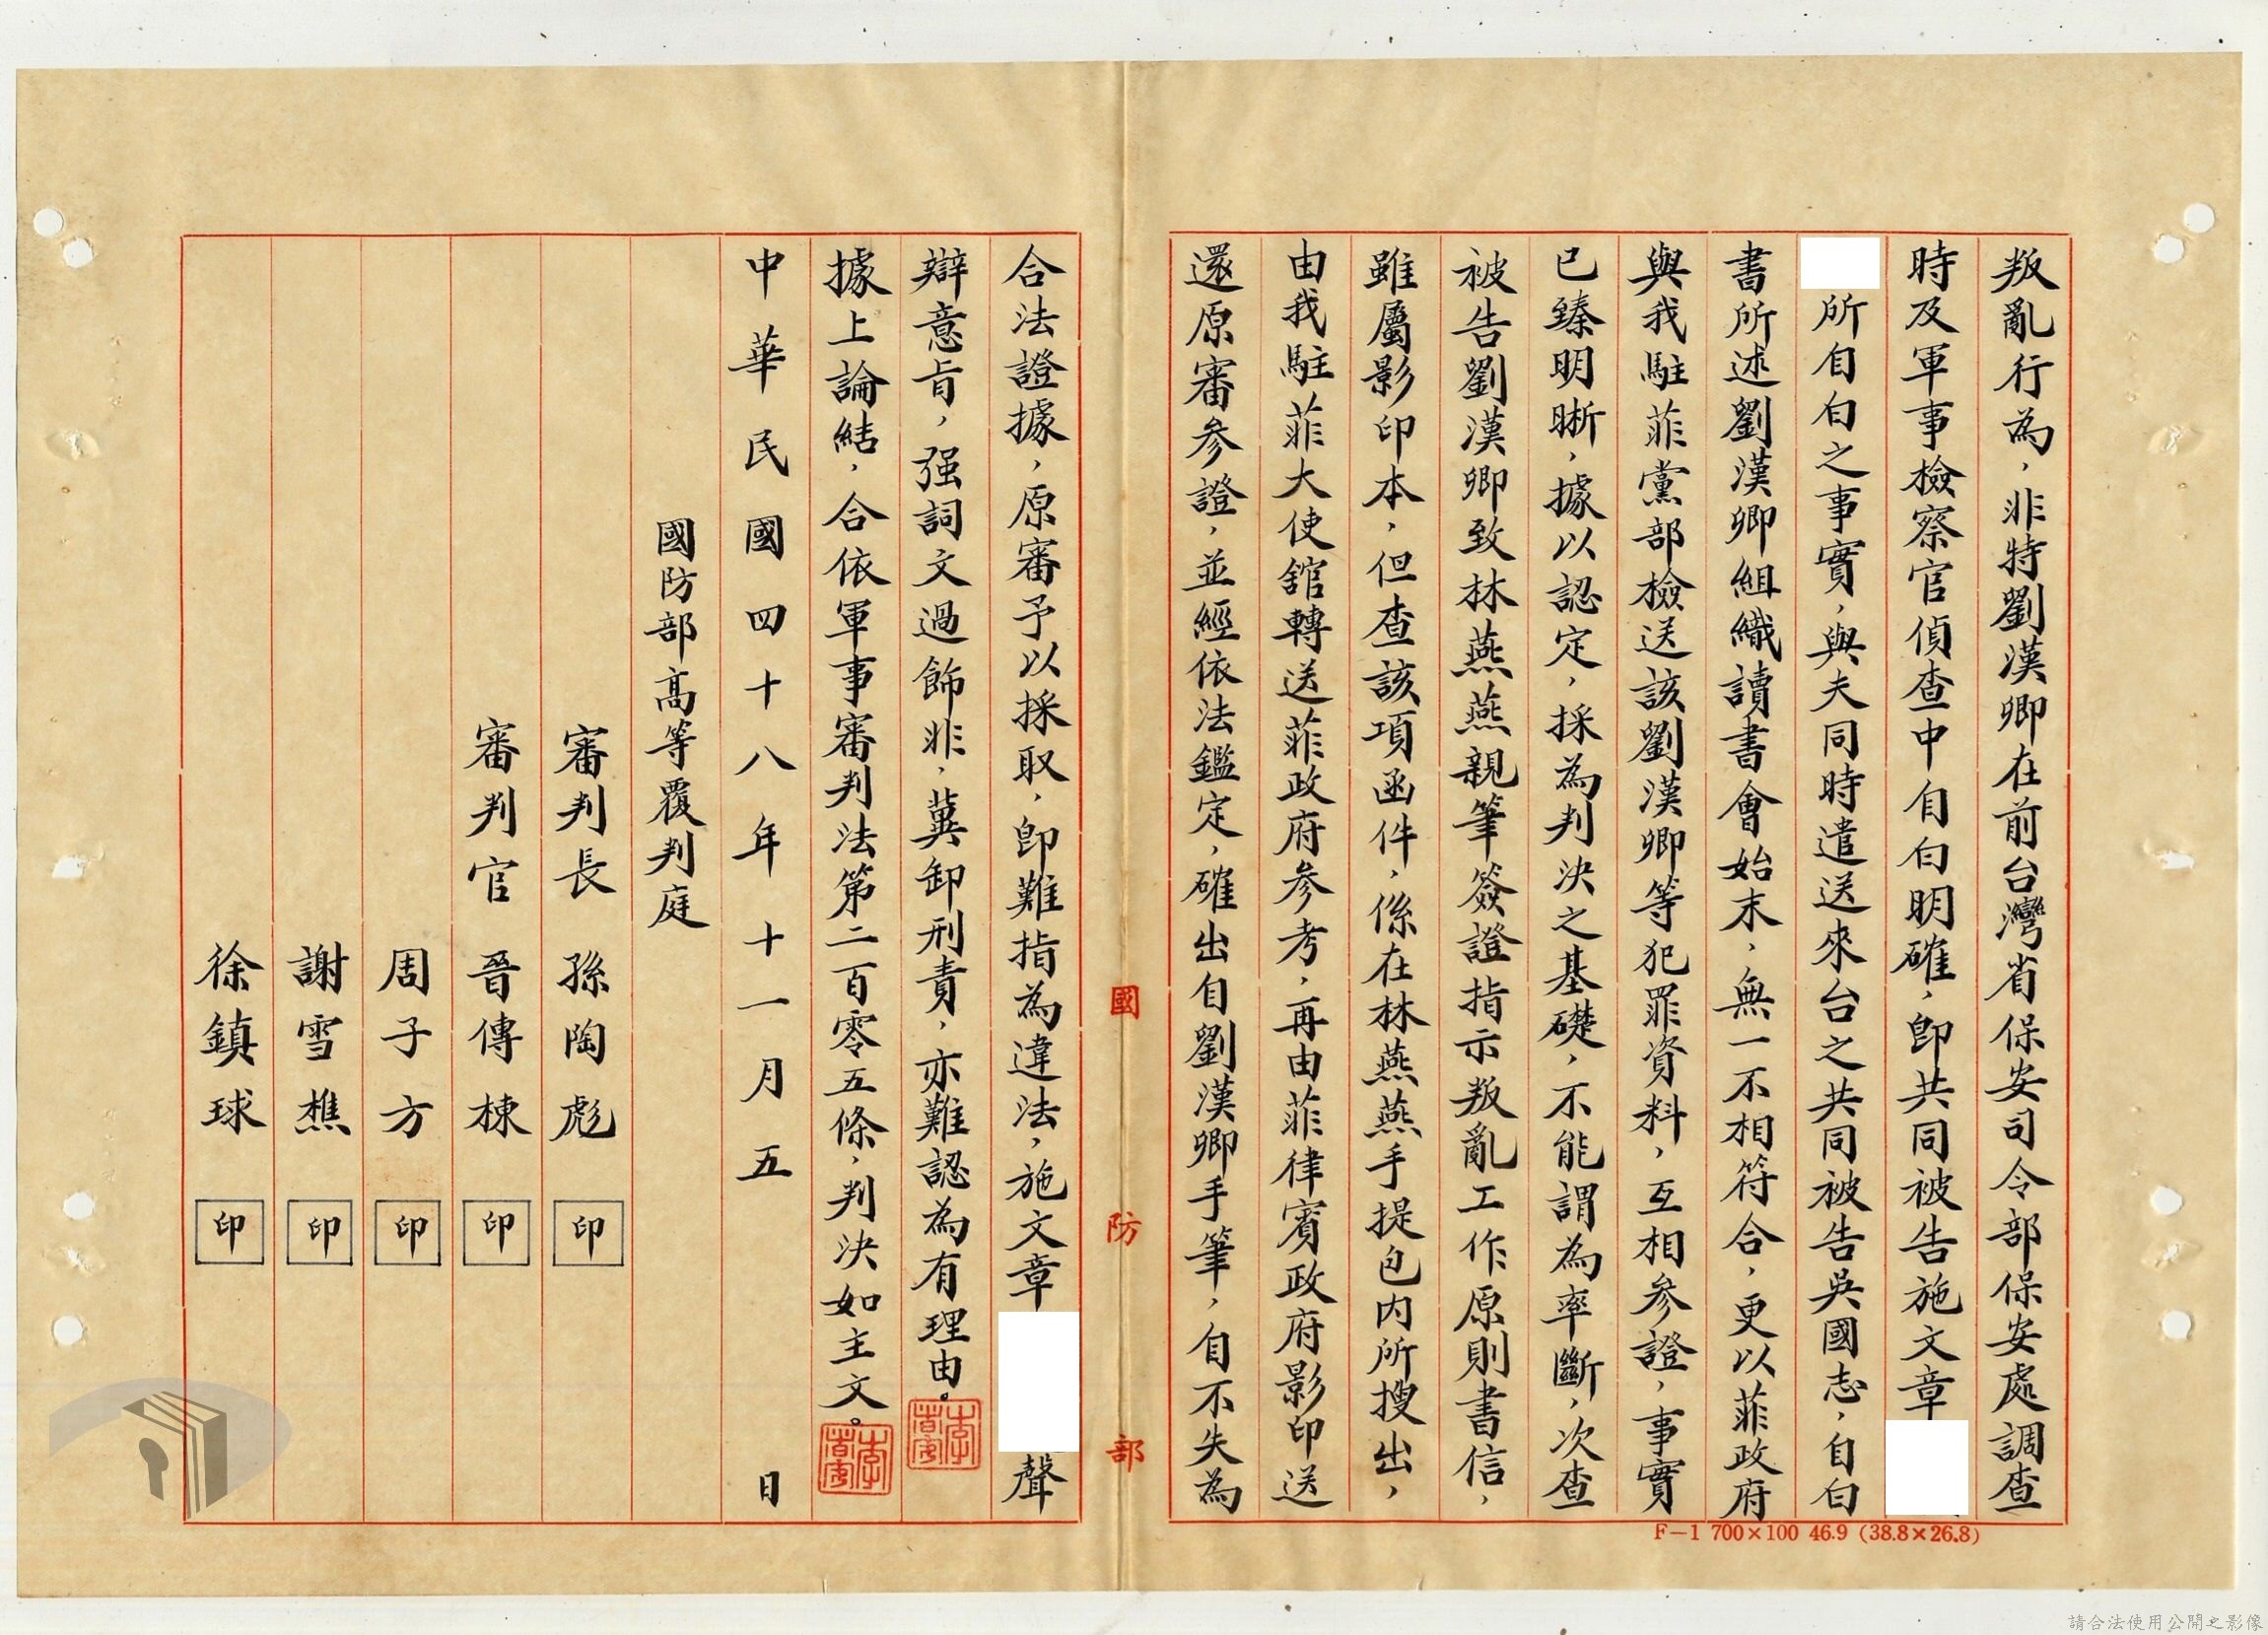 叛亂行為，非特劉漢卿在前台灣省保安司令部保安處調查
時及軍事檢察官偵查中自白明確，即共同被告施文章
所自白之事實，與夫同時遣送來台之共同被告吳國志，自白
書所述劉漢卿組織讀書會始末，無一不相符合，更以菲政府
與我駐菲黨部檢送該劉漢卿等犯罪資料，互相參證，事實
已臻明晰，據以認定，採為判決之基礎，不能謂為率斷，次查
被告劉漢卿致林燕燕親筆簽證指示叛亂工作原則書信，
雖屬影印本，但查該項函件，係在林燕燕手提包內所搜出，
由我駐菲大使舘轉送菲政府參考，再由菲律賓政府影印送
還原審參證，並經依法鑑定，確出自劉漢卿手筆，自不失為
合法證據，原審予以採取，即難指為違法，施文章
聲
辯意旨，强詞文過飾非，冀卸刑責，亦難認為有理由。
據上論結，合依軍事審判法第二百零五條，判決如主文。
中華民國四十八年十一月五日
國防部高等覆判庭
審判長 孫陶彪 印
審判官 晉傳棟 印
周子方 印
謝雪樵 印
徐鎮球 印
國防部
F－1 700×100 46.9 (38.8×26.8)
請合法使用公開之影像